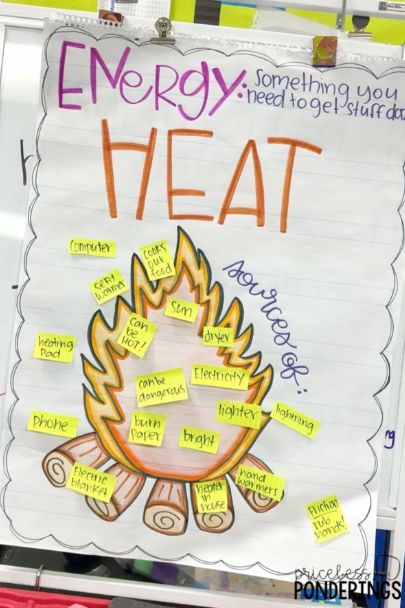 ENERGY: something you
need to get stuff do
HEAT
sources of:
computer
cooks
our
food
seat
warmer
sun
can
be
HOT!
dryer
heating
pad
Electricity
can be
dangerous
lighter
lightning
phone
burn
paper
bright
Electric
blanket
heater
in
house
hand
warmers
Friction
rub
hands
pricebess
PONDERINGS